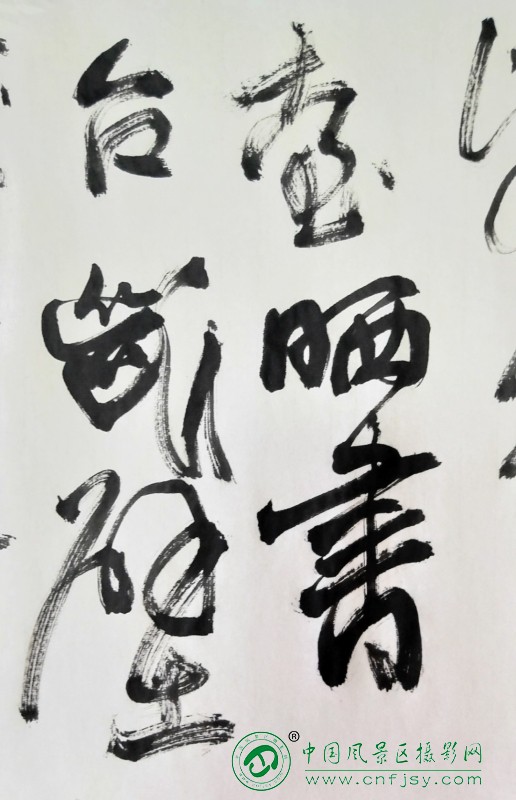 臺晒書
台壁
®
中国风景区摄影网
www.cnfjsy.com